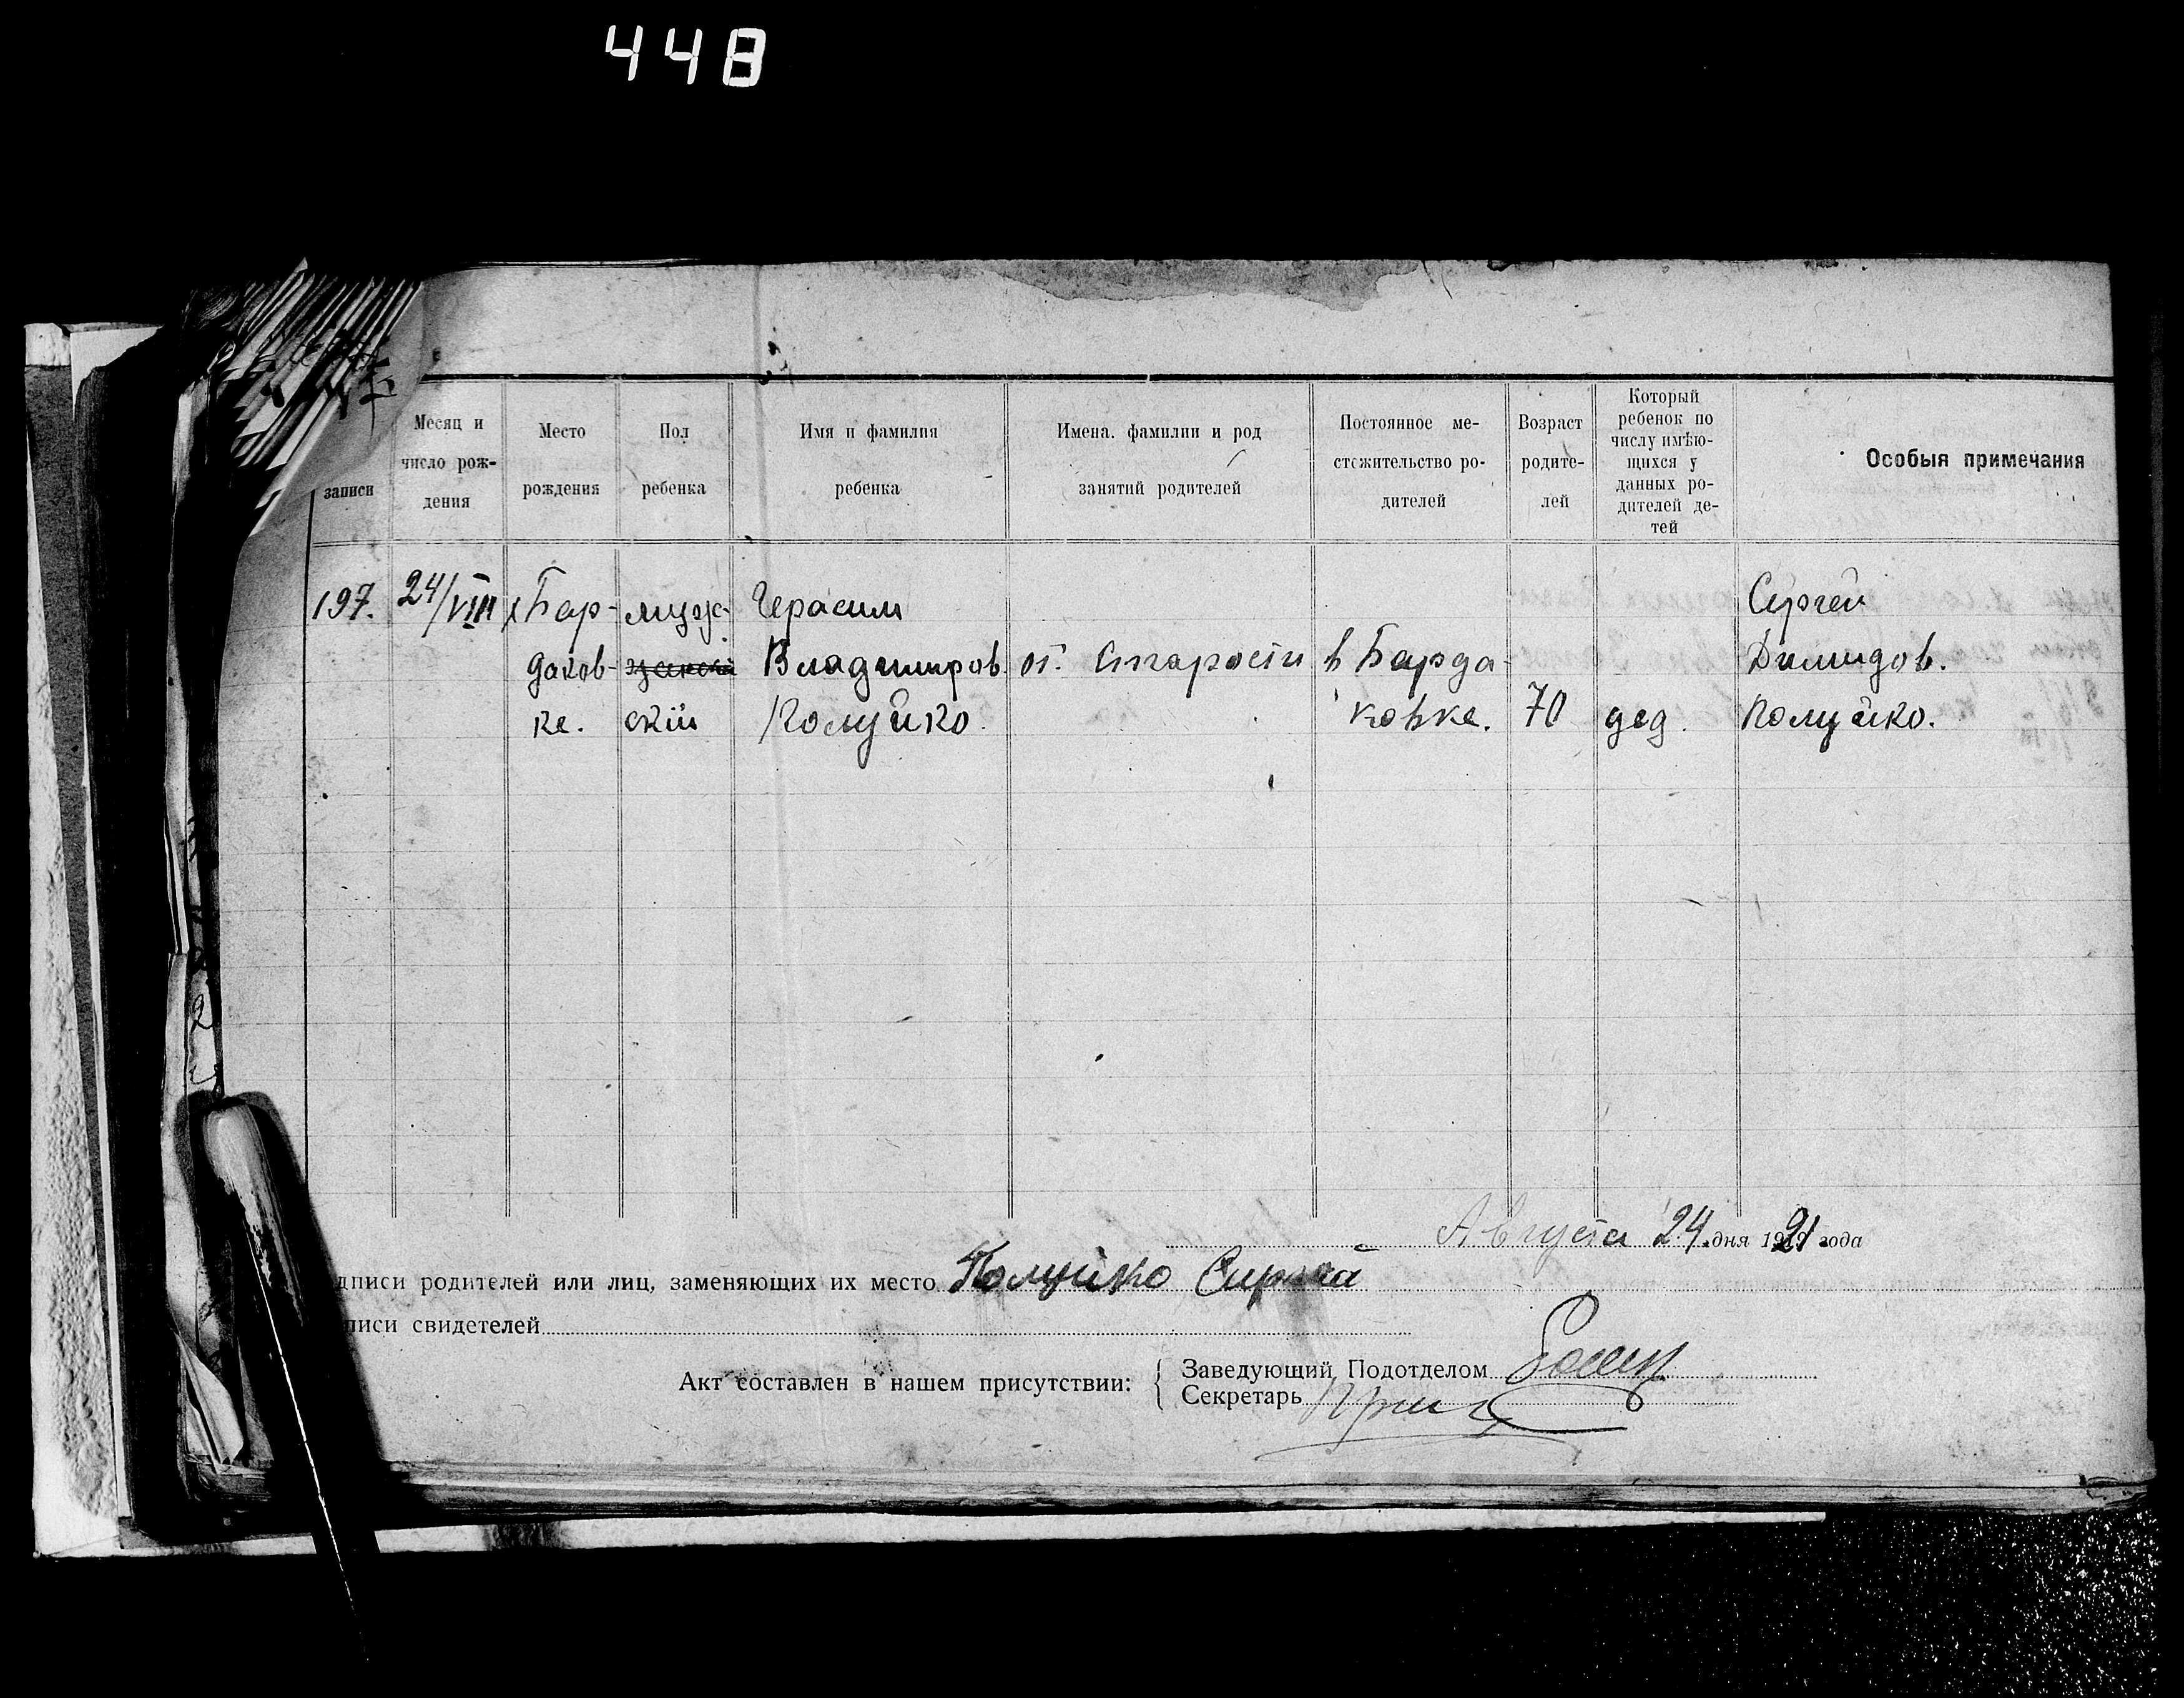 448
записи
Месяц и число рождения
Место рождения
Пол ребенка
Имя и фамилия ребенка
Имена, фамилии и род занятий родителей
Постоянное местожительство родителей
Возраст родителей
Который ребенок по числу имѣющихся у данных родителей детей
Особыя примечания
197. 24/VIII х Бар- муж- Герасим Сергей
даков- женски Владимиров. от старости в Барда- Димидов.
ке. скiй Полуйко. ковке. 70 дед. Полуйко.
Августа 24 дня 1921 года
дписи родителей или лиц, заменяющих их место Полуйко Сиргей
писи свидетелей
Акт составлен в нашем присутствии:
Заведующий Подотделом
Секретарь